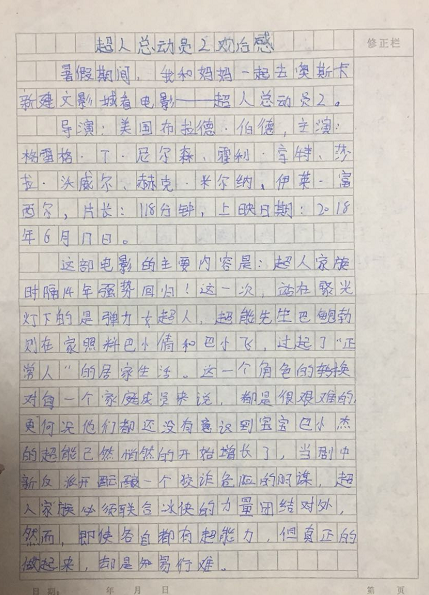 超人总动员2观后感
修正栏
暑假期间,我和妈妈一起去奥斯卡
新建文影城看电影——超人总动员2。
导演:美国布拉德·伯德,主演:
格雷格·T·尼尔森、霍利·亨特、莎
拉·沃威尔、赫克·米尔纳,伊莱·富
西尔,片长:118分钟,上映日期:2018
年6月17日。
这部电影的主要内容是:超人家族
时隔14年强势回归!这一次,站在聚光
灯下的是弹力女超人,超能先生巴鲍勃
则在家照料巴小倩和巴小飞,过起了“正
常人”的居家生活。这一个角色的转换
对每一个家庭成员来说,都是很艰难的
更何况他们都还没有意识到宝宝巴小杰
的超能已然悄然的开始增长了,当剧中
新反派酝酿一个狡诈危险的阴谋,超
人家族必须联合冰侠的力量团结对外,
然而,即使各自都有超能力,但真正的
做起来,却是知易行难。
日期: 年 月 日 第 页